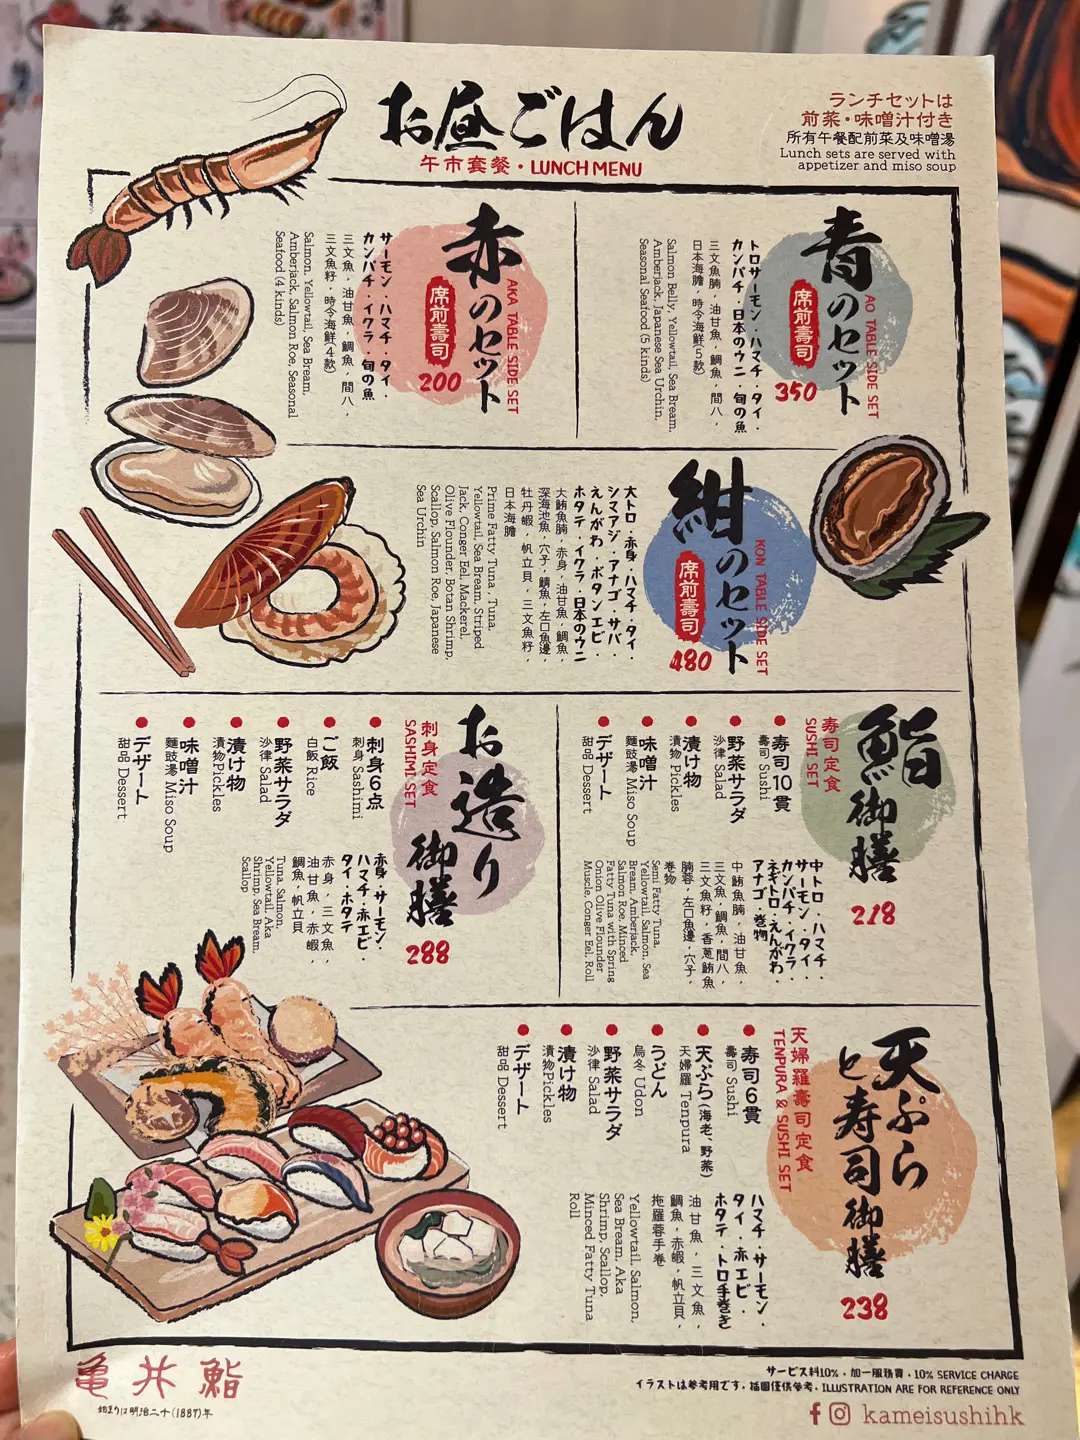 お昼ごはん
午市套餐・LUNCH MENU
ランチセットは
前菜・味噌汁付き
所有午餐配前菜及味噌湯
Lunch sets are served with
appetizer and miso soup
青のセット
AO TABLE SIDE SET
席前壽司
350
トロサーモン・ハマチ・タイ・
カンパチ・日本のウニ・旬の魚
三文魚腩，油甘魚，鯛魚，間八，
日本海膽，時令海鮮(5款)
Salmon Belly, Yellowtail, Sea Bream,
Amberjack, Japanese Sea Urchin,
Seasonal Seafood (5 kinds)
赤のセット
AKA TABLE SIDE SET
席前壽司
200
サーモン・ハマチ・タイ・
カンパチ・イクラ・旬の魚
三文魚，油甘魚，鯛魚，間八，
三文魚籽，時令海鮮(4款)
Salmon, Yellowtail, Sea Bream,
Amberjack, Salmon Roe, Seasonal
Seafood (4 kinds)
紺のセット
KON TABLE SIDE SET
席前壽司
480
大トロ・赤身・ハマチ・タイ・
シマアジ・アナゴ・サバ・
えんがわ・ボタンエビ・
ホタテ・イクラ・日本のウニ
大鮪魚腩，赤身，油甘魚，鯛魚，
深海池魚，穴子，鯖魚，左口魚邊，
牡丹蝦，帆立貝，三文魚籽，
日本海膽
Prime Fatty Tuna, Tuna,
Yellowtail, Sea Bream, Striped
Jack, Conger Eel, Mackerel,
Olive Flounder, Botan Shrimp,
Scallop, Salmon Roe, Japanese
Sea Urchin
鮨御膳
壽司定食
SUSHI SET
218
壽司10貫
壽司 Sushi
野菜サラダ
沙律 Salad
漬け物
漬物 Pickles
味噌汁
麵豉湯 Miso Soup
デザート
甜品 Dessert
中トロ・ハマチ・
サーモン・タイ・
カンパチ・イクラ・
ネギトロ・えんがわ・
アナゴ・巻物
中鮪魚腩，油甘魚，
三文魚，鯛魚，間八，
三文魚籽，香蔥鮪魚
腩蓉，左口魚邊，穴子，
卷物
Semi Fatty Tuna,
Yellowtail, Salmon, Sea
Bream, Amberjack,
Salmon Roe, Minced
Fatty Tuna with Spring
Onion Olive Flounder
Muscle, Conger Eel, Roll
お造り御膳
刺身定食
SASHIMI SET
288
刺身6点
刺身 Sashimi
ご飯
白飯 Rice
野菜サラダ
沙律 Salad
漬け物
漬物Pickles
味噌汁
麵豉湯 Miso Soup
デザート
甜品 Dessert
赤身・サーモン・
ハマチ・赤エビ・
タイ・ホタテ
赤身，三文魚，
油甘魚，赤蝦，
鯛魚，帆立貝
Tuna, Salmon,
Yellowtail, Aka
Shrimp, Sea Bream,
Scallop
天ぷら
と寿司御膳
天婦羅壽司定食
TENPURA & SUSHI SET
238
寿司6貫
壽司 Sushi
天ぷら(海老、野菜)
天婦羅 Tenpura
うどん
烏冬 Udon
野菜サラダ
沙律 Salad
漬け物
漬物Pickles
デザート
甜品 Dessert
ハマチ・サーモン・
タイ・赤エビ・
ホタテ・トロ手巻き
油甘魚，三文魚，
鯛魚，赤蝦，帆立貝，
拖羅蓉手卷
Yellowtail, Salmon,
Sea Bream, Aka
Shrimp, Scallop,
Minced Fatty Tuna
Roll
亀井鮨
始まりは明治二十(1887)年
サービス料10%・加一服務費・10% SERVICE CHARGE
イラストは参考用です・插圖僅供參考・ILLUSTRATION ARE FOR REFERENCE ONLY
kameisushihk